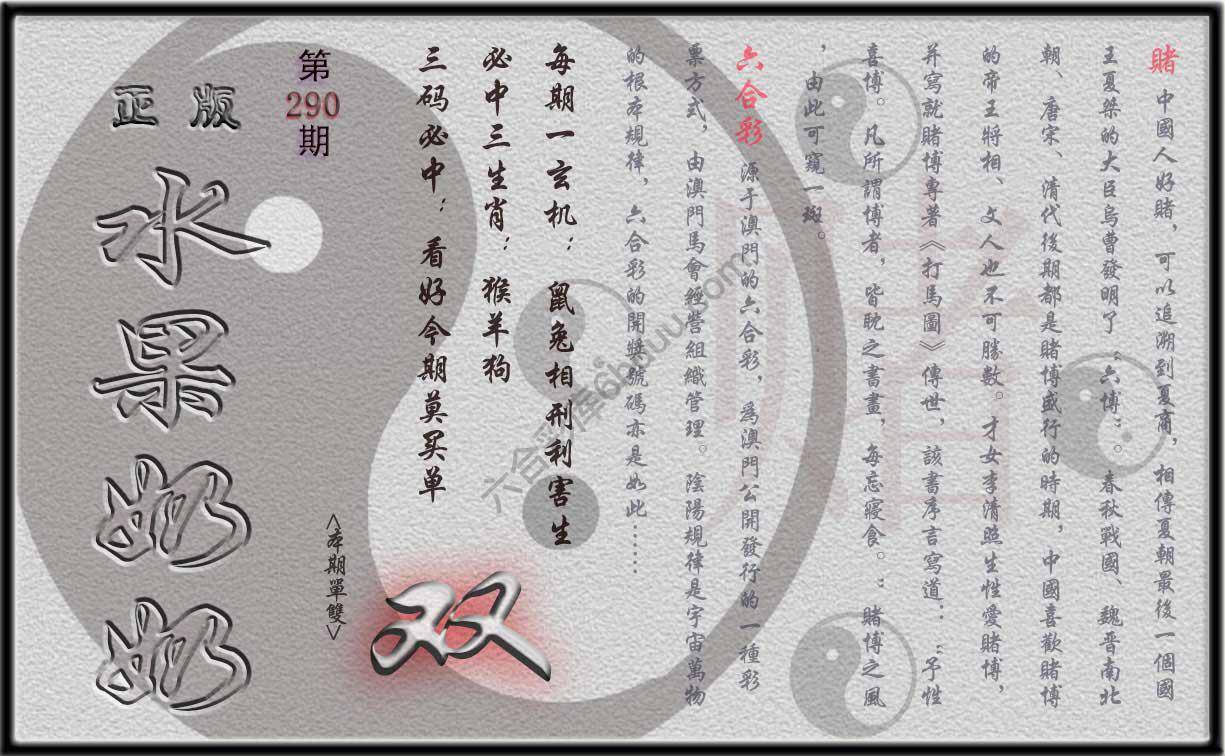 賭 中國人好賭，可以追溯到夏商，相傳夏朝最後一個國
王夏桀的大臣烏曹發明了“六博”。春秋戰國、魏晉南北
朝、唐宋、清代後期都是賭博盛行的時期，中國喜歡賭博
的帝王將相、文人也不可勝數。才女李清照生性愛賭博，
并寫就賭博專著《打馬圖》傳世，該書序言寫道：“予性
喜博。凡所謂博者，皆眈之晝晝，每忘寢食。”賭博之風
，由此可窺一斑。
六合彩 源于澳門的六合彩，爲澳門公開發行的一種彩
票方式，由澳門馬會經營組織管理。陰陽規律是宇宙萬物
的根本規律，六合彩的開獎號碼亦是如此……
每期一玄机：鼠兔相刑利害生
必中三生肖：猴羊狗
三码必中：看好今期莫买单
<本期單雙>
双
第
290
期
正版
水果奶奶
賭
六合彩库6huuu.com